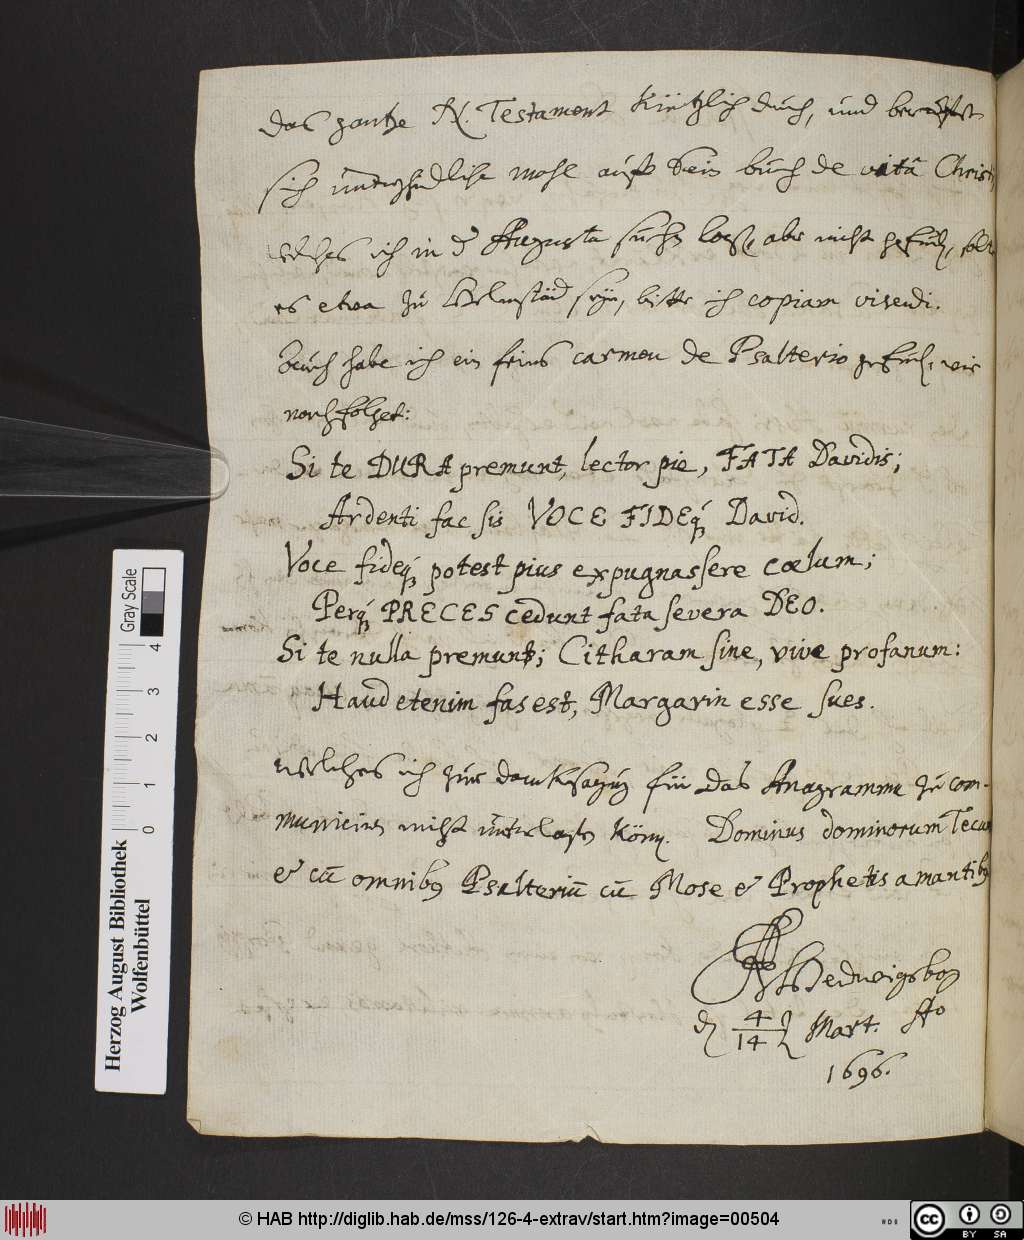 das gantze N. Testament kürtzlich durch, und berufft
sich unterschiedliche mahl auff sein buch de vitâ Christi
welches ich in d Augusta suchen laße, aber nicht gefund, solte
es etwa zu Helmstäd seyn, bitte ich copiam videndi.
Auch habe ich ein feines carmen de Psalterio gefund, wie
nachfolget:
Si te DURA premunt, lector pie, FATA Davidis;
Ardenti fac sis VOCE FIDEq́ David.
Voce fideq́ potest pius expugnassere cœlum;
Perq́ PRECES cedunt fata severa DEO.
Si te nulla premunt; Citharam sine, vive profanum:
Haud etenim fas est, Margarin esse sues.
welches ich zur dancksagung für das Anagramma zu com-
municiren nicht unterlaßen könen. Dominus dominorum Tecum
& cū omnibq Psalteriū cū Mose & Prophetis amantibq
Hedwigsbog
d 4/14 Mart. Ao
1696.
Gray Scale
0 1 2 3 4
Herzog August Bibliothek
Wolfenbüttel
© HAB http://diglib.hab.de/mss/126-4-extrav/start.htm?image=00504
cc BY SA